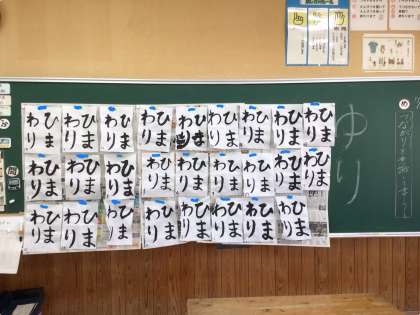 ひま
わり
ひま
わり
ひま
わり
ひま
わり
ひま
わり
ひま
わり
ひま
わり
ひま
わり
ひま
わり
ひま
わり
ひま
わり
ひま
わり
ひま
わり
ひま
わり
ひま
わり
ひま
わり
ひま
わり
ひま
わり
ひま
わり
ひま
わり
ひま
わり
ひま
わり
ひま
わり
ひま
わり
ひま
わり
ひま
わり
ゆり
め
つながりを